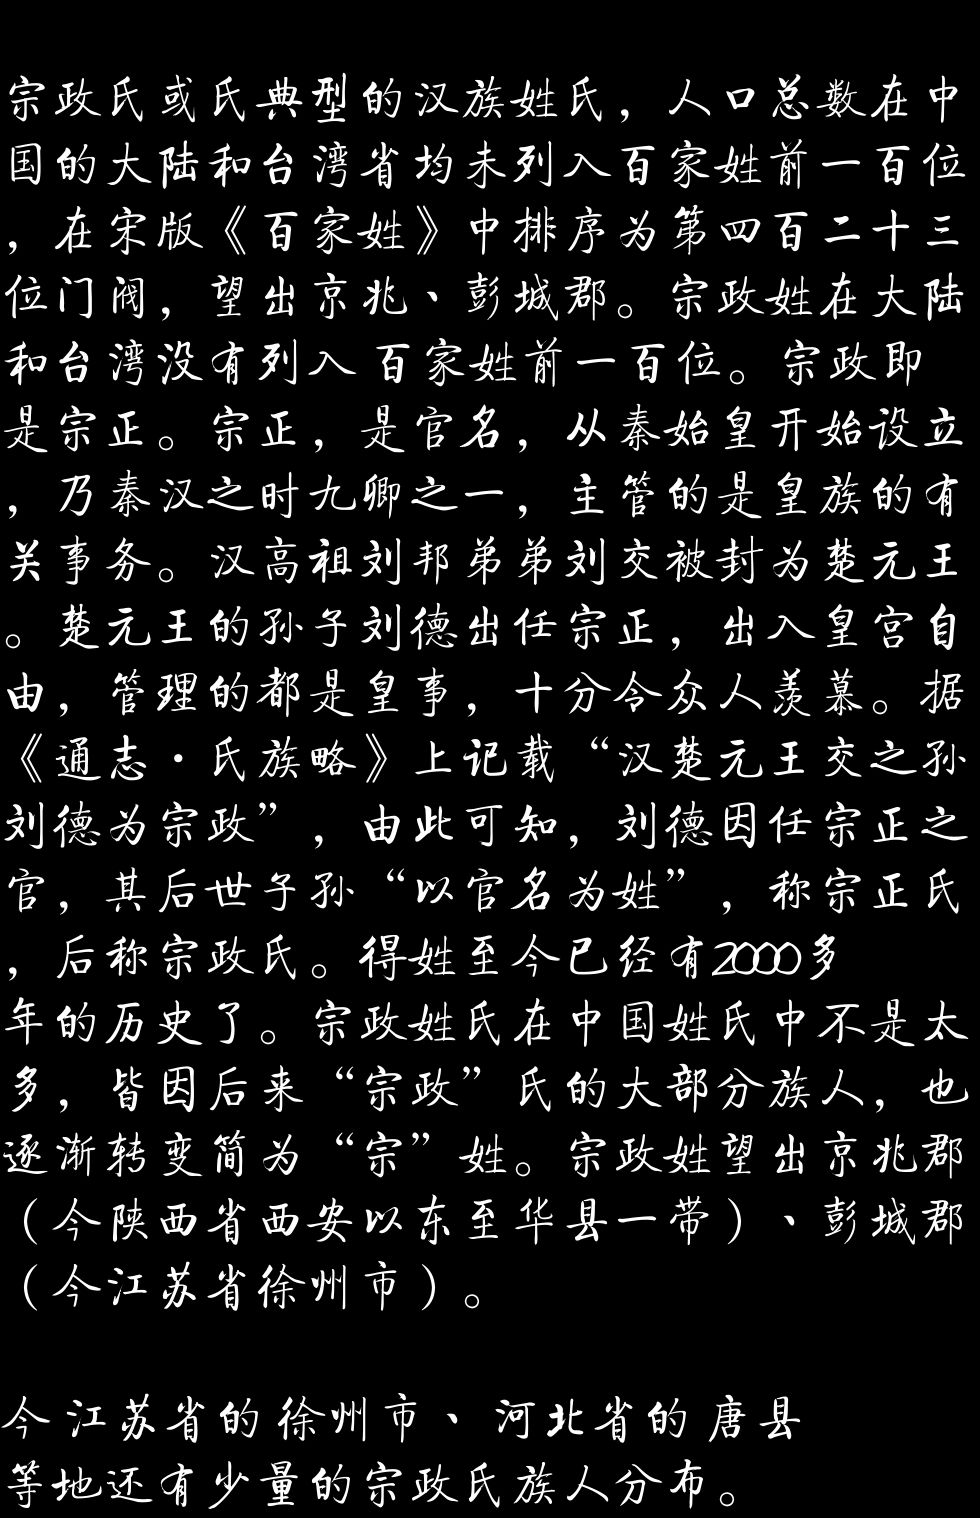 宗政氏或氏典型的汉族姓氏，人口总数在中
国的大陆和台湾省均未列入百家姓前一百位
，在宋版《百家姓》中排序为第四百二十三
位门阀，望出京兆、彭城郡。宗政姓在大陆
和台湾没有列入百家姓前一百位。宗政即
是宗正。宗正，是官名，从秦始皇开始设立
，乃秦汉之时九卿之一，主管的是皇族的有
关事务。汉高祖刘邦弟弟刘交被封为楚元王
。楚元王的孙子刘德出任宗正，出入皇宫自
由，管理的都是皇事，十分令众人羡慕。据
《通志·氏族略》上记载“汉楚元王交之孙
刘德为宗政”，由此可知，刘德因任宗正之
官，其后世子孙“以官名为姓”，称宗正氏
，后称宗政氏。得姓至今已经有2000多
年的历史了。宗政姓氏在中国姓氏中不是太
多，皆因后来“宗政”氏的大部分族人，也
逐渐转变简为“宗”姓。宗政姓望出京兆郡
（今陕西省西安以东至华县一带）、彭城郡
（今江苏省徐州市）。
今江苏省的徐州市、河北省的唐县
等地还有少量的宗政氏族人分布。